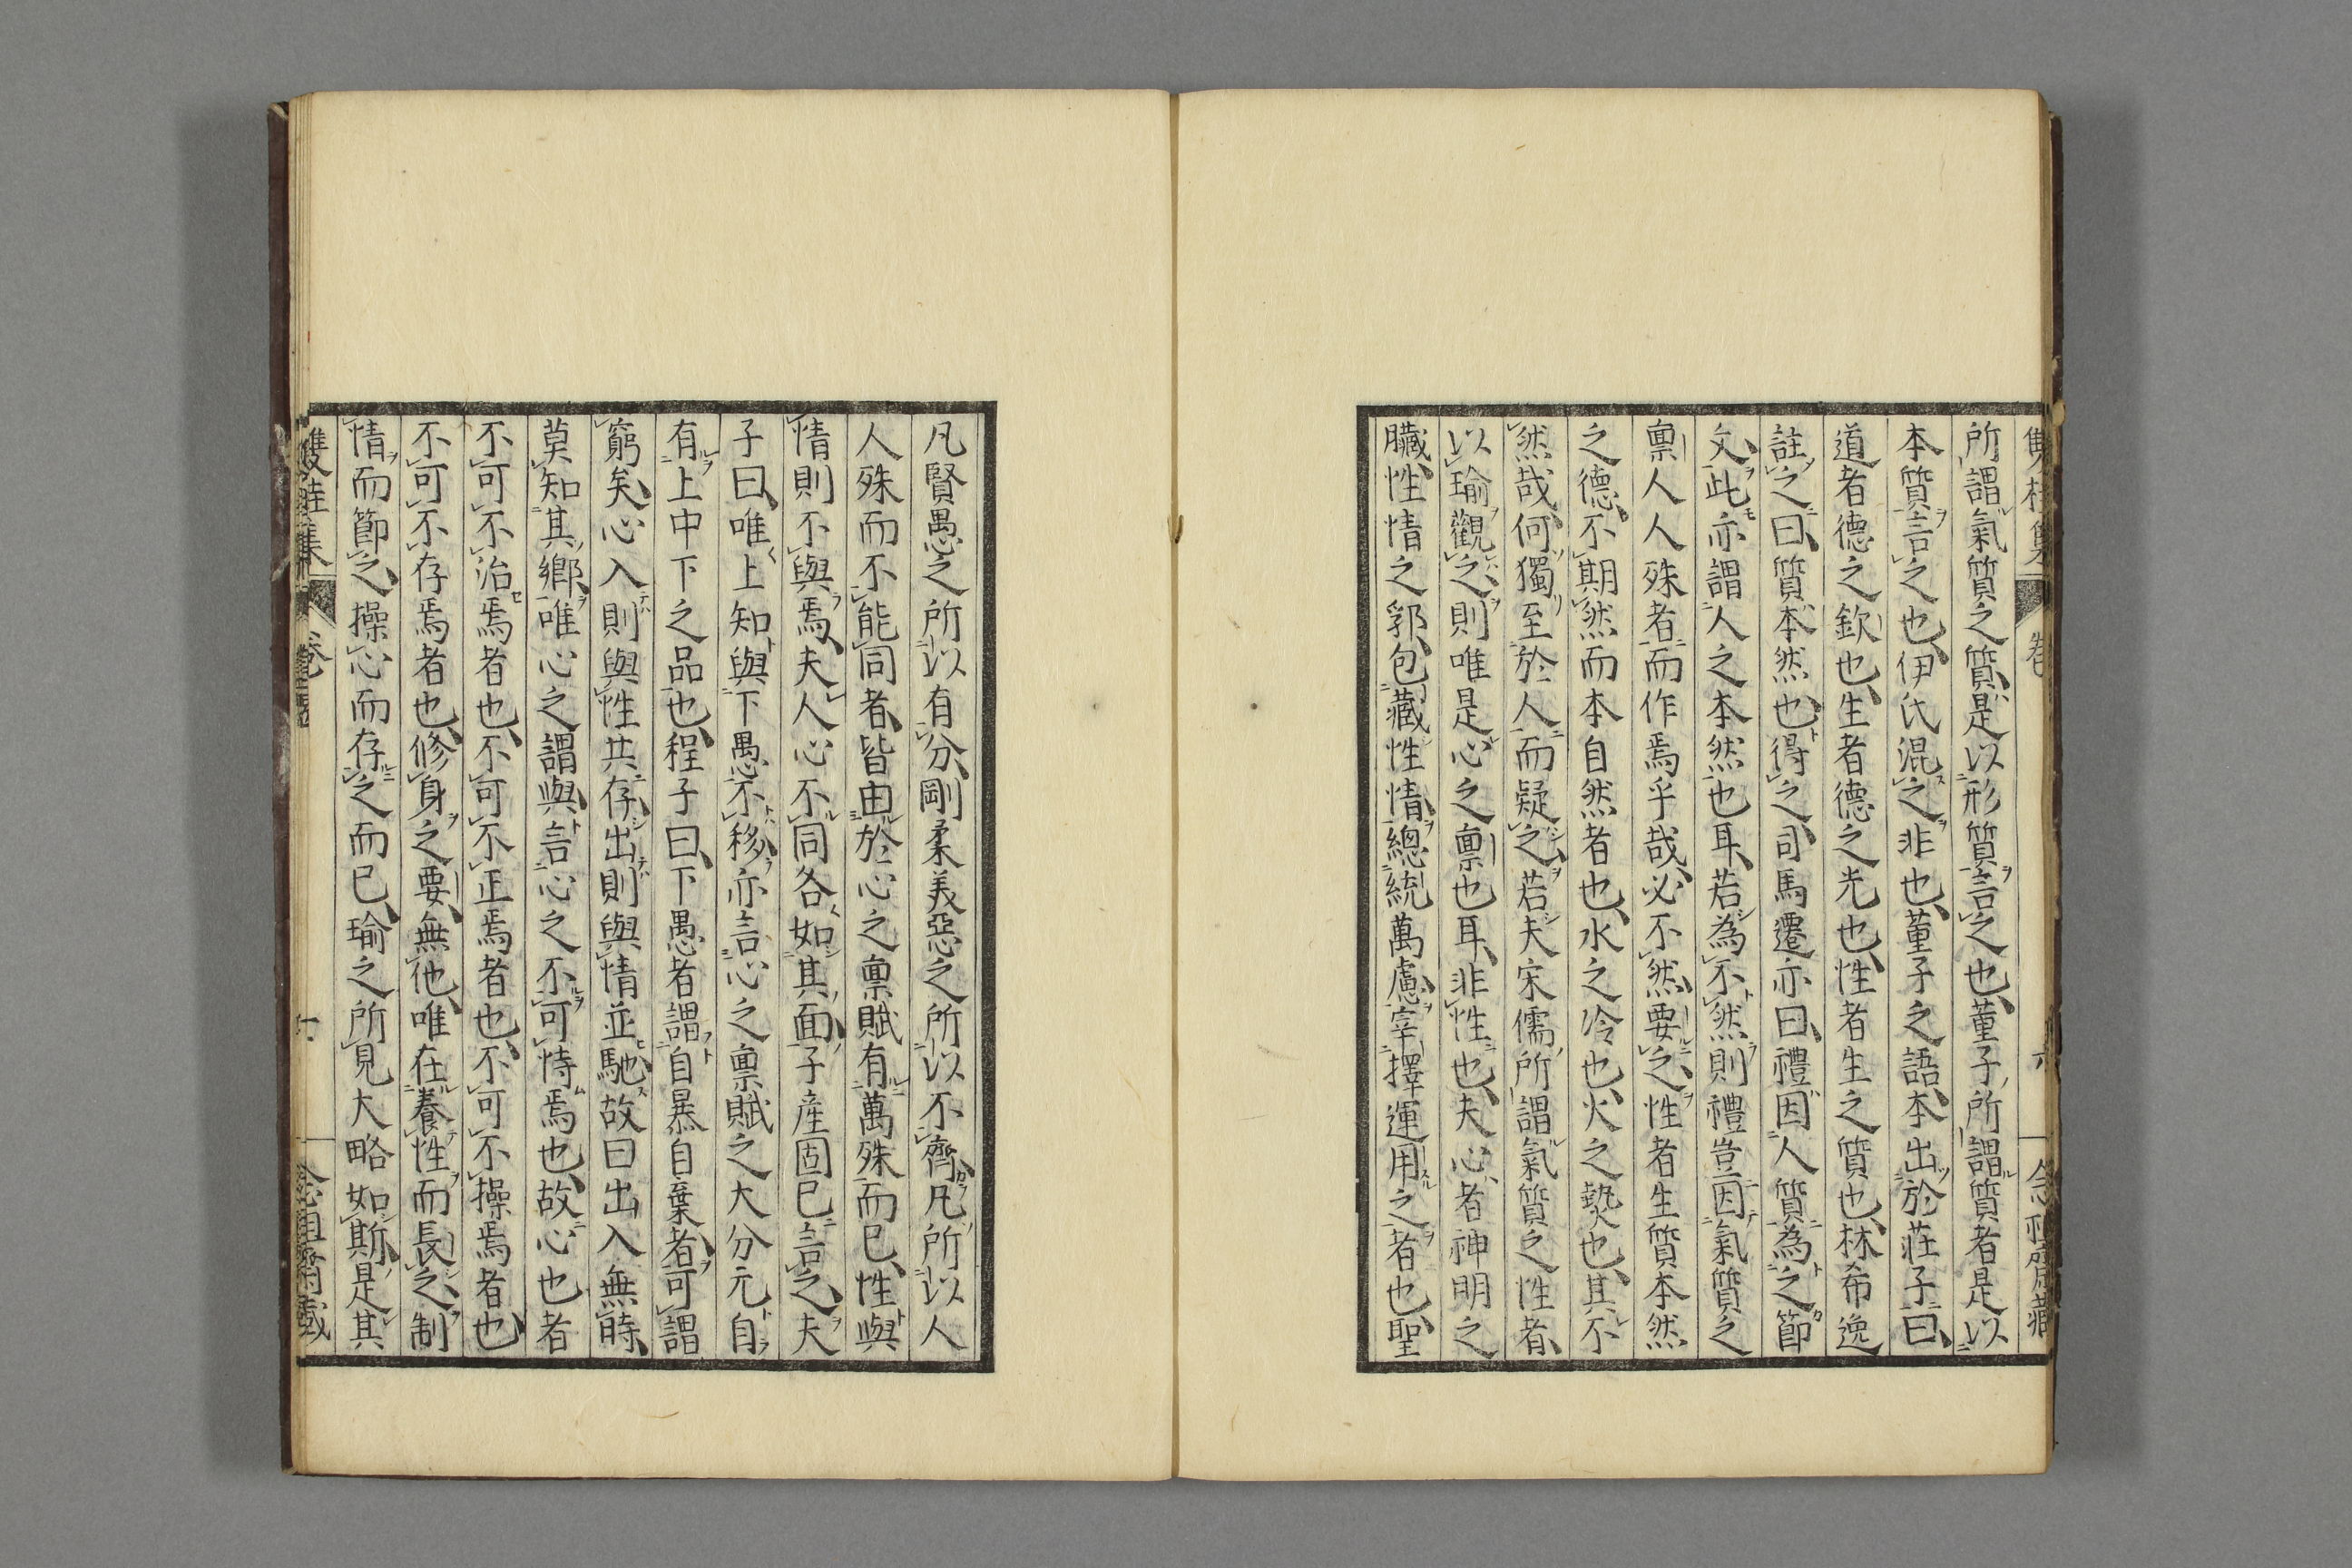 所謂氣質之質、是以形質言之也、董子所謂質者是以
本質言之也、伊氏混之非也、董子之語、本出於莊子曰、
道者德之欽也、生者德之光也、性者生之質也、林希逸
註之曰、質本然也、得之、司馬遷亦曰、禮因人質為之節
文、此亦謂人之本然也耳、若為不然則禮豈因氣質之
稟人人殊者而作焉乎哉、必不然、要之、性者生質本然
之德、不期然而本自然者也、水之冷也、火之熱也、其不
然哉、何獨至於人而疑之、若夫宋儒所謂氣質之性者、
以瑜觀之、則唯是心之稟也耳、非性也、夫心者神明之
臟、性情之郛、包藏性情、總統萬慮、宰擇運用之者也、聖
凡賢愚之所以有分、剛柔美惡之所以不齊、凡所以人
人殊而不能同者、皆由於心之稟賦有萬殊而已、性與
情則不與焉、夫人心不同各如其面、子產固已言之、夫
子曰、唯上知與下愚不移、亦言心之稟賦之大分元自
有上中下之品也、程子曰、下愚者謂自暴自棄者、可謂
窮矣、心入則與性共存、出則與情並馳、故曰出入無時、
莫知其鄉、唯心之謂與、言心之不可恃焉也、故心也者
不可不治焉者也、不可不正焉者也、不可不操焉者也、
不可不存焉者也、修身之要、無他、唯在養性而長之、制
情而節之、操心而存之而已、瑜之所見大略如斯、是其
雙桂集